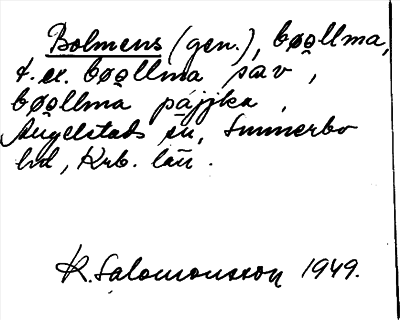 Bolmens (gen.), bøo̲llma,
t. ex. bøo̲llma sav,
bøo̲llma pájjka,
Angelstads sn, Sunnerbo
hd, Krb. län.
R. Salomonsson 1949.